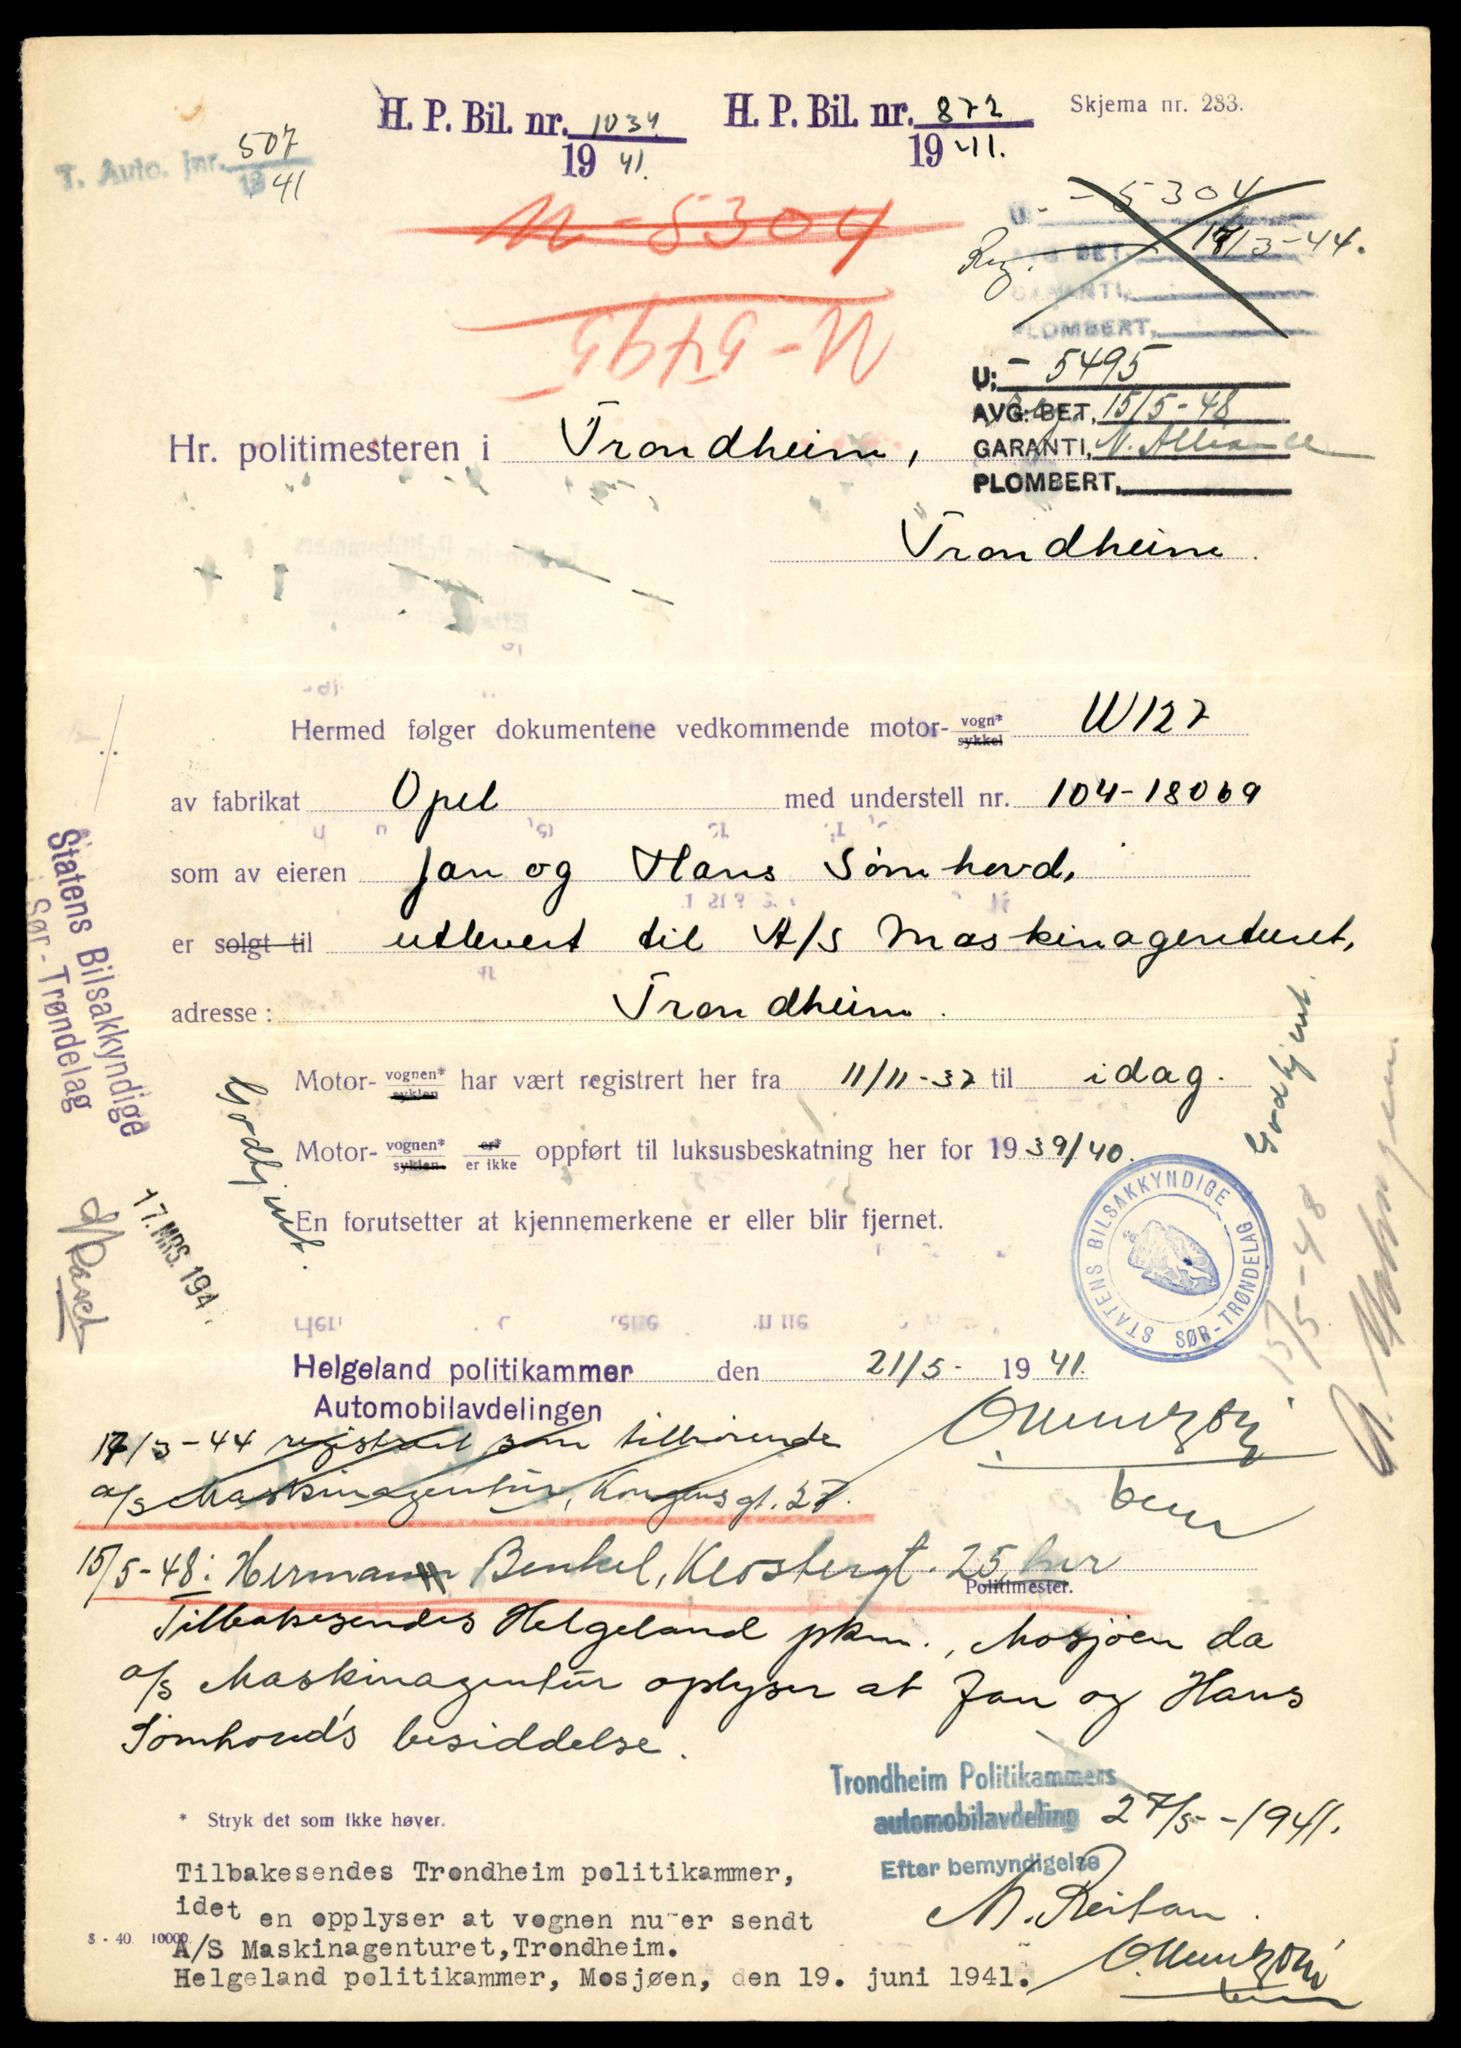 H. P. Bil. nr. 1034
19 41.
H. P. Bil. nr. 872
19 41.
Skjema nr. 283.
T. Auto. jnr. 507
1941
U - 5304
U. - 5304
Reg. AVG. BET. 17/3-44.
GARANTI,
PLOMBERT,
U - 5495
U; - 5495
AVG. BET. 15/5-48
GARANTI, N. Alliance
PLOMBERT,
Hr. politimesteren i Trondheim,
Trondheim.
Hermed følger dokumentene vedkommende motor- vogn* sykkel W127
av fabrikat Opel med understell nr. 104-18069
som av eieren Jan og Hans Sømhovd,
er solgt til utlevert til A/S Maskinagenturet,
adresse: Trondheim.
Motor- vognen* syklen har vært registrert her fra 11/11-37 til idag.
Motor- vognen* syklen er* er ikke oppført til luksusbeskatning her for 19 39/40.
En forutsetter at kjennemerkene er eller blir fjernet.
Statens Bilsakkyndige
Sør-Trøndelag
17. MRS. 194
Godkjent.
Godkjent.
15/5-48
STATENS BILSAKKYNDIGE SØR-TRØNDELAG
Helgeland politikammer den 21/5- 19 41.
Automobilavdelingen
17/3-44 registrert som tilhørende
a/s Maskinagentur, Kongensgt. 27.
15/5-48: Hermann Benkel, Klostergt. 25, her
Politimester.
Tilbakesendes Helgeland pkm., Mosjøen da
a/s Maskinagentur oplyser at Jan og Hans
Sømhovd's besiddelse.
Trondheim Politikammers
automobilavdeling 27/5-1941.
Efter bemyndigelse
M. Reitan.
* Stryk det som ikke høver.
Tilbakesendes Trondheim politikammer,
idet en opplyser at vognen nu er sendt
A/S Maskinagenturet, Trondheim.
Helgeland politikammer, Mosjøen, den 19. juni 1941.
8 - 40 10000